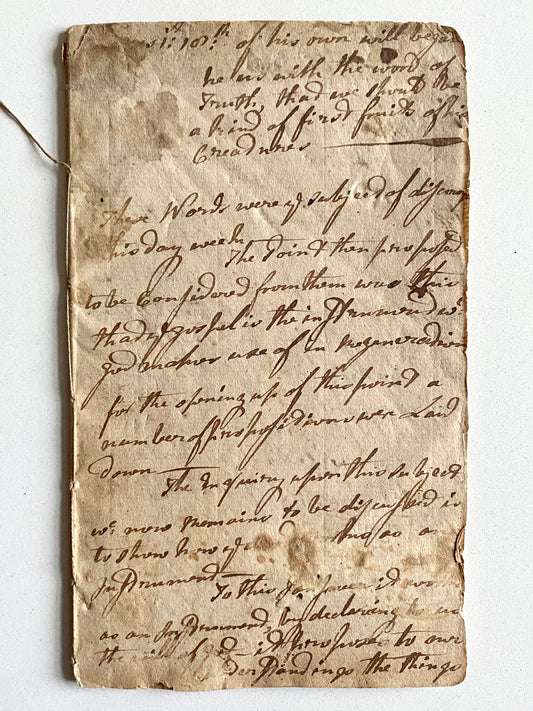 1st 18th of his own will begat
he us with the word of
Truth, that we should be
a kind of first fruits of his
Creatures
These Words were ye subject of discours
this day week The Point then proposed
to be Considered from them was this
that ye gospel is the instrument wc
god makes use of in regeneration
for the opening up of this point a
number of propositions were Laid
down
The Inquiry upon this subject
wc now remains to be discussed is
to show how ye as an
Instrument
To this I answer it works
as an Instrument by declaring to us
the will of god it proposes to our
understandings the things